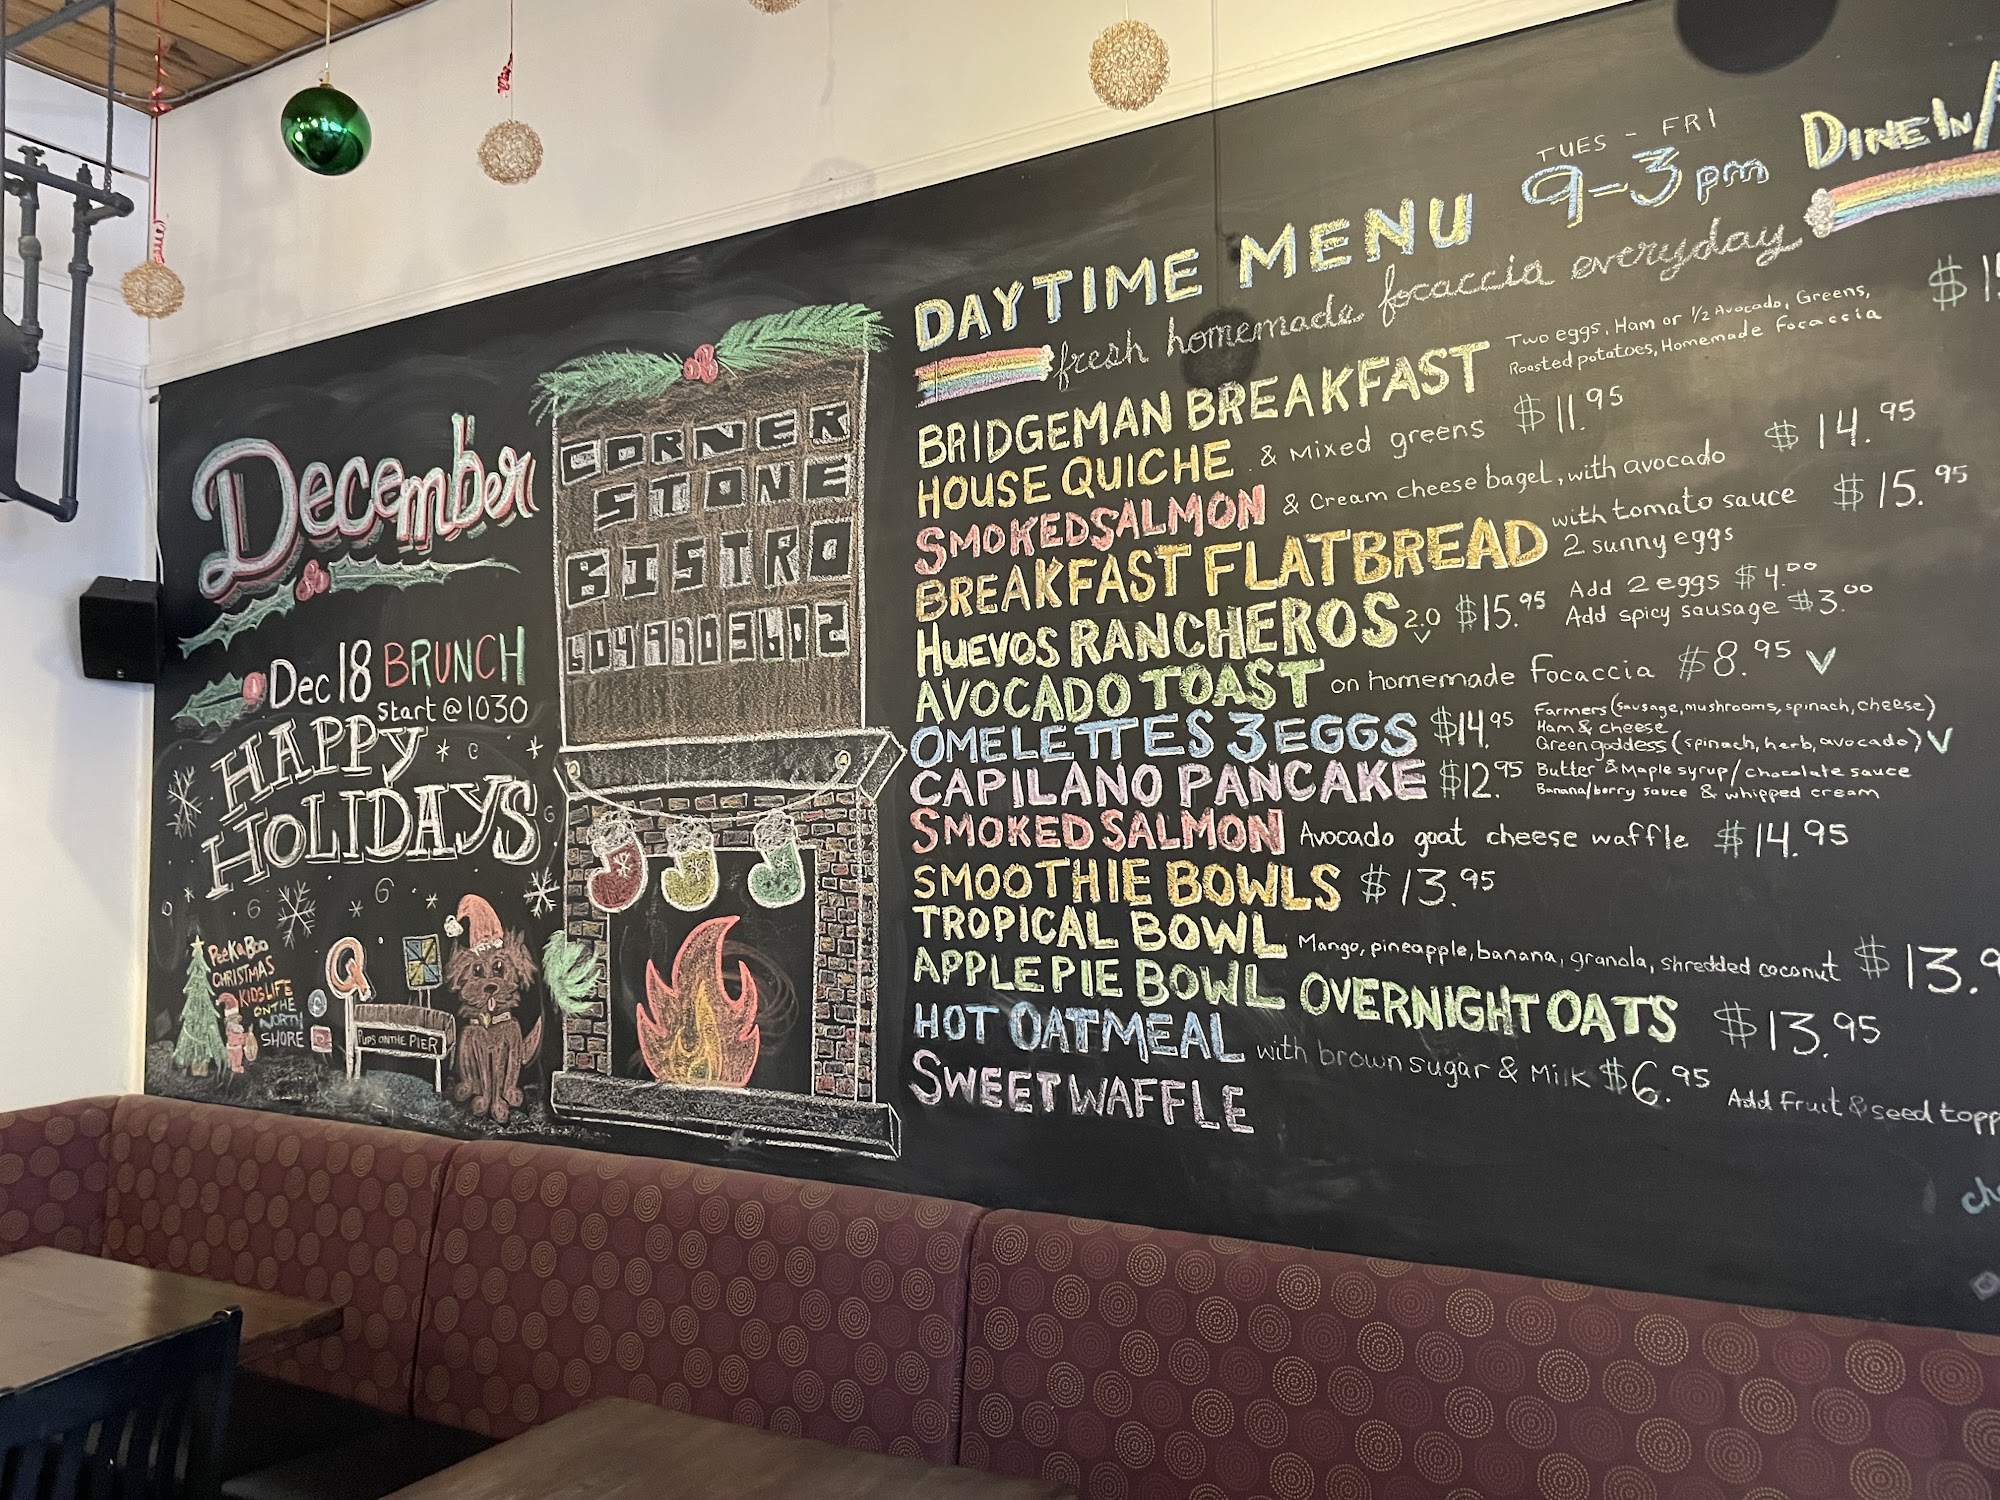 December
Dec 18 BRUNCH
Start @ 1030
HAPPY
HOLIDAYS
PeeKaBoo
CHRISTMAS
KIDS LIFE
ON THE
NORTH
SHORE
Q
PUPS ON THE PIER
CORNER
STONE
BISTRO
6049903602
DAYTIME MENU TUES - FRI 9-3pm DINE IN/
fresh homemade focaccia everyday
BRIDGEMAN BREAKFAST Two eggs, Ham or 1/2 Avocado, Greens,
Roasted potatoes, Homemade Focaccia
HOUSE QUICHE & Mixed greens $11.95
SMOKED SALMON & Cream cheese bagel, with avocado $14.95
BREAKFAST FLATBREAD with tomato sauce $15.95
2 sunny eggs
HUEVOS RANCHEROS 2.0 V $15.95 Add 2 eggs $4.00
Add spicy sausage $3.00
AVOCADO TOAST on homemade Focaccia $8.95 V
OMELETTES 3 EGGS $14.95 Farmers (sausage, mushrooms, spinach, cheese)
Ham & cheese
Green goddess (spinach, herb, avocado) V
CAPILANO PANCAKE $12.95 Butter & Maple syrup/chocolate sauce
Banana/berry sauce & whipped cream
SMOKED SALMON Avocado goat cheese waffle $14.95
SMOOTHIE BOWLS $13.95
TROPICAL BOWL Mango, pineapple, banana, granola, shredded coconut $13.9
APPLE PIE BOWL OVERNIGHT OATS $13.95
HOT OATMEAL with brown sugar & Milk $6.95 Add Fruit & seed topp
SWEET WAFFLE